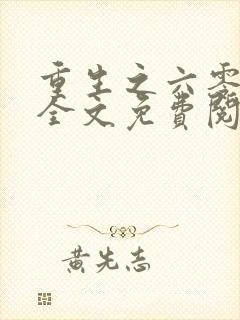 重生之六零
全文免费阅
黄先志